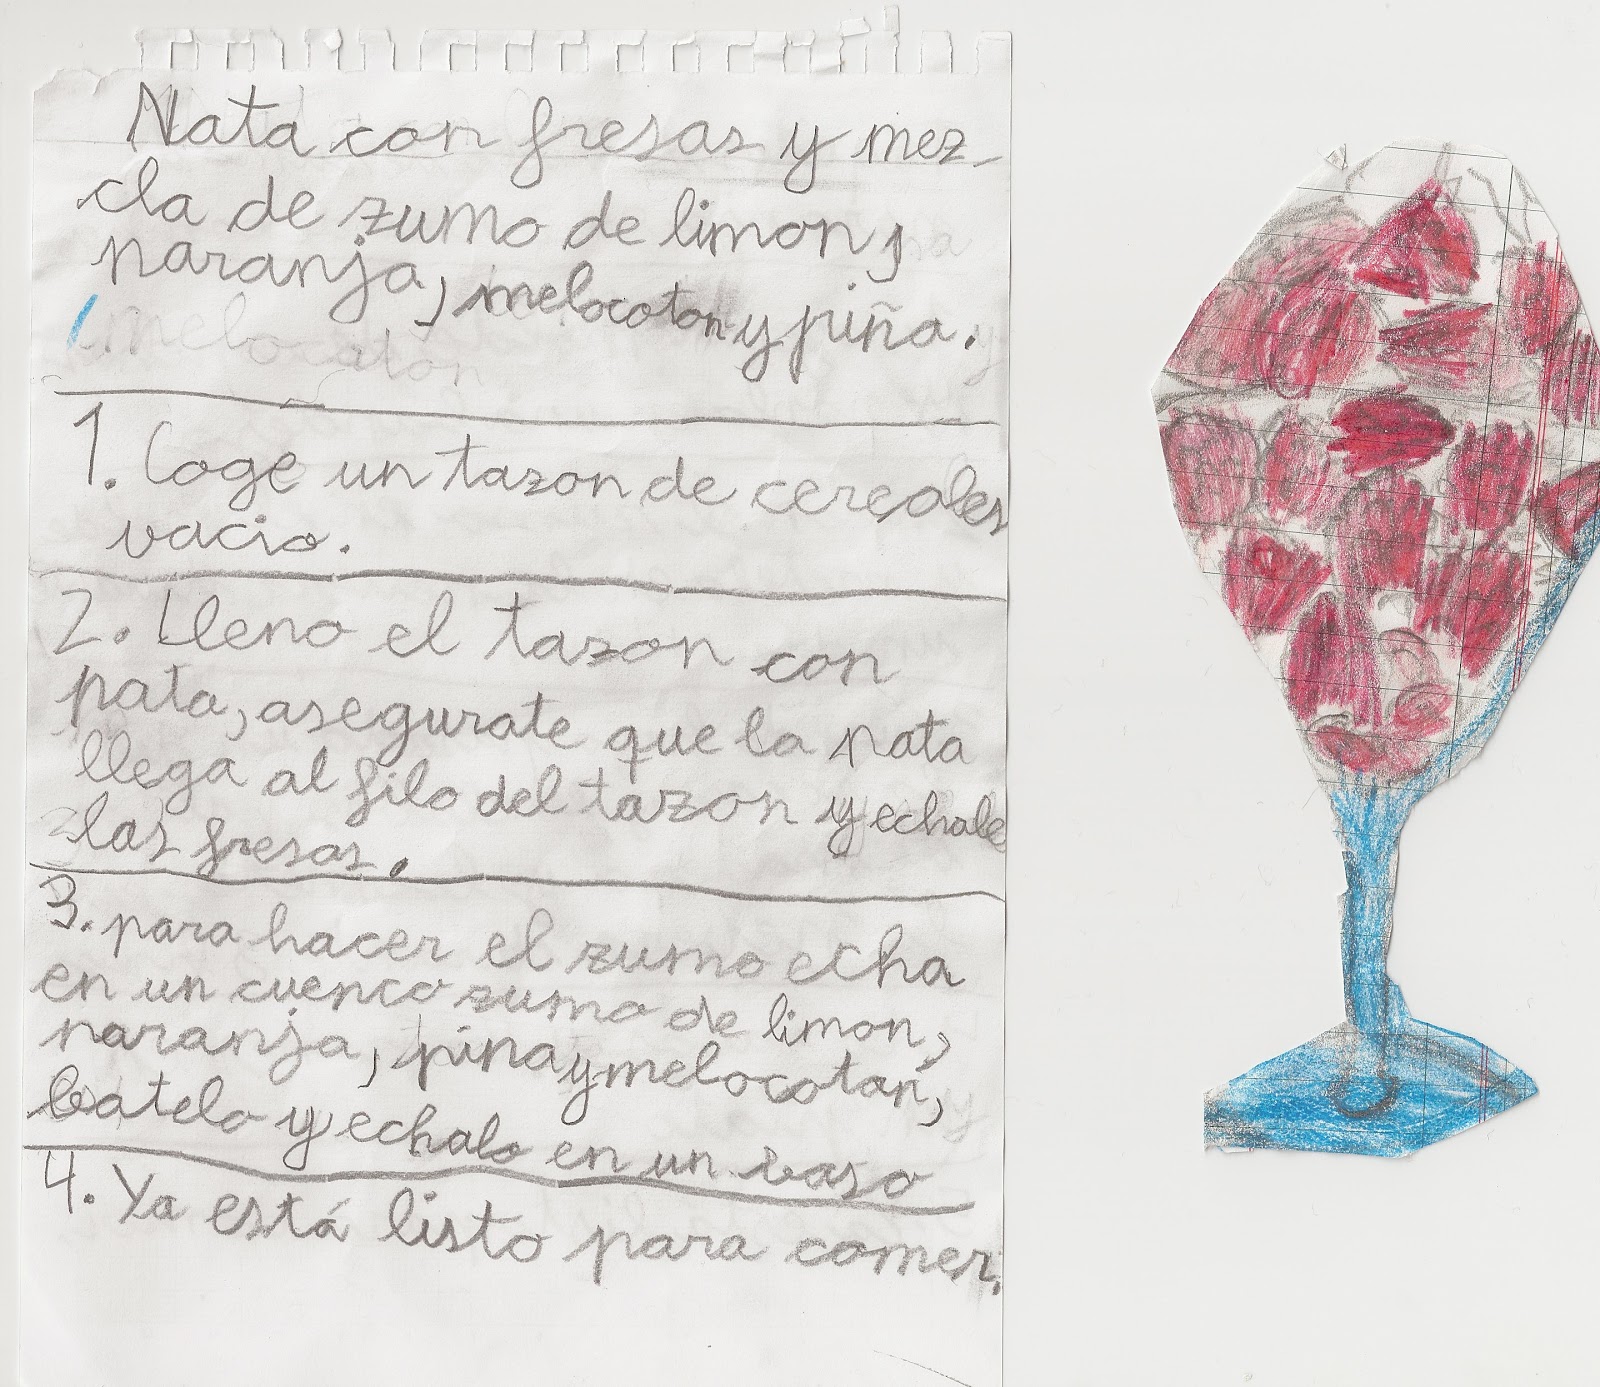 Nata con fresas y mez-
cla de zumo de limon,
naranja, melocoton y piña.
1. Coge un tazon de cereales
vacio.
2. Lleno el tazon con
nata, asegurate que la nata
llega al filo del tazon y echale
las fresas.
3. para hacer el zumo echa
en un cuenco zumo de limon,
naranja, pina y melocoton,
batelo y echalo en un vaso
4. Ya está listo para comer.